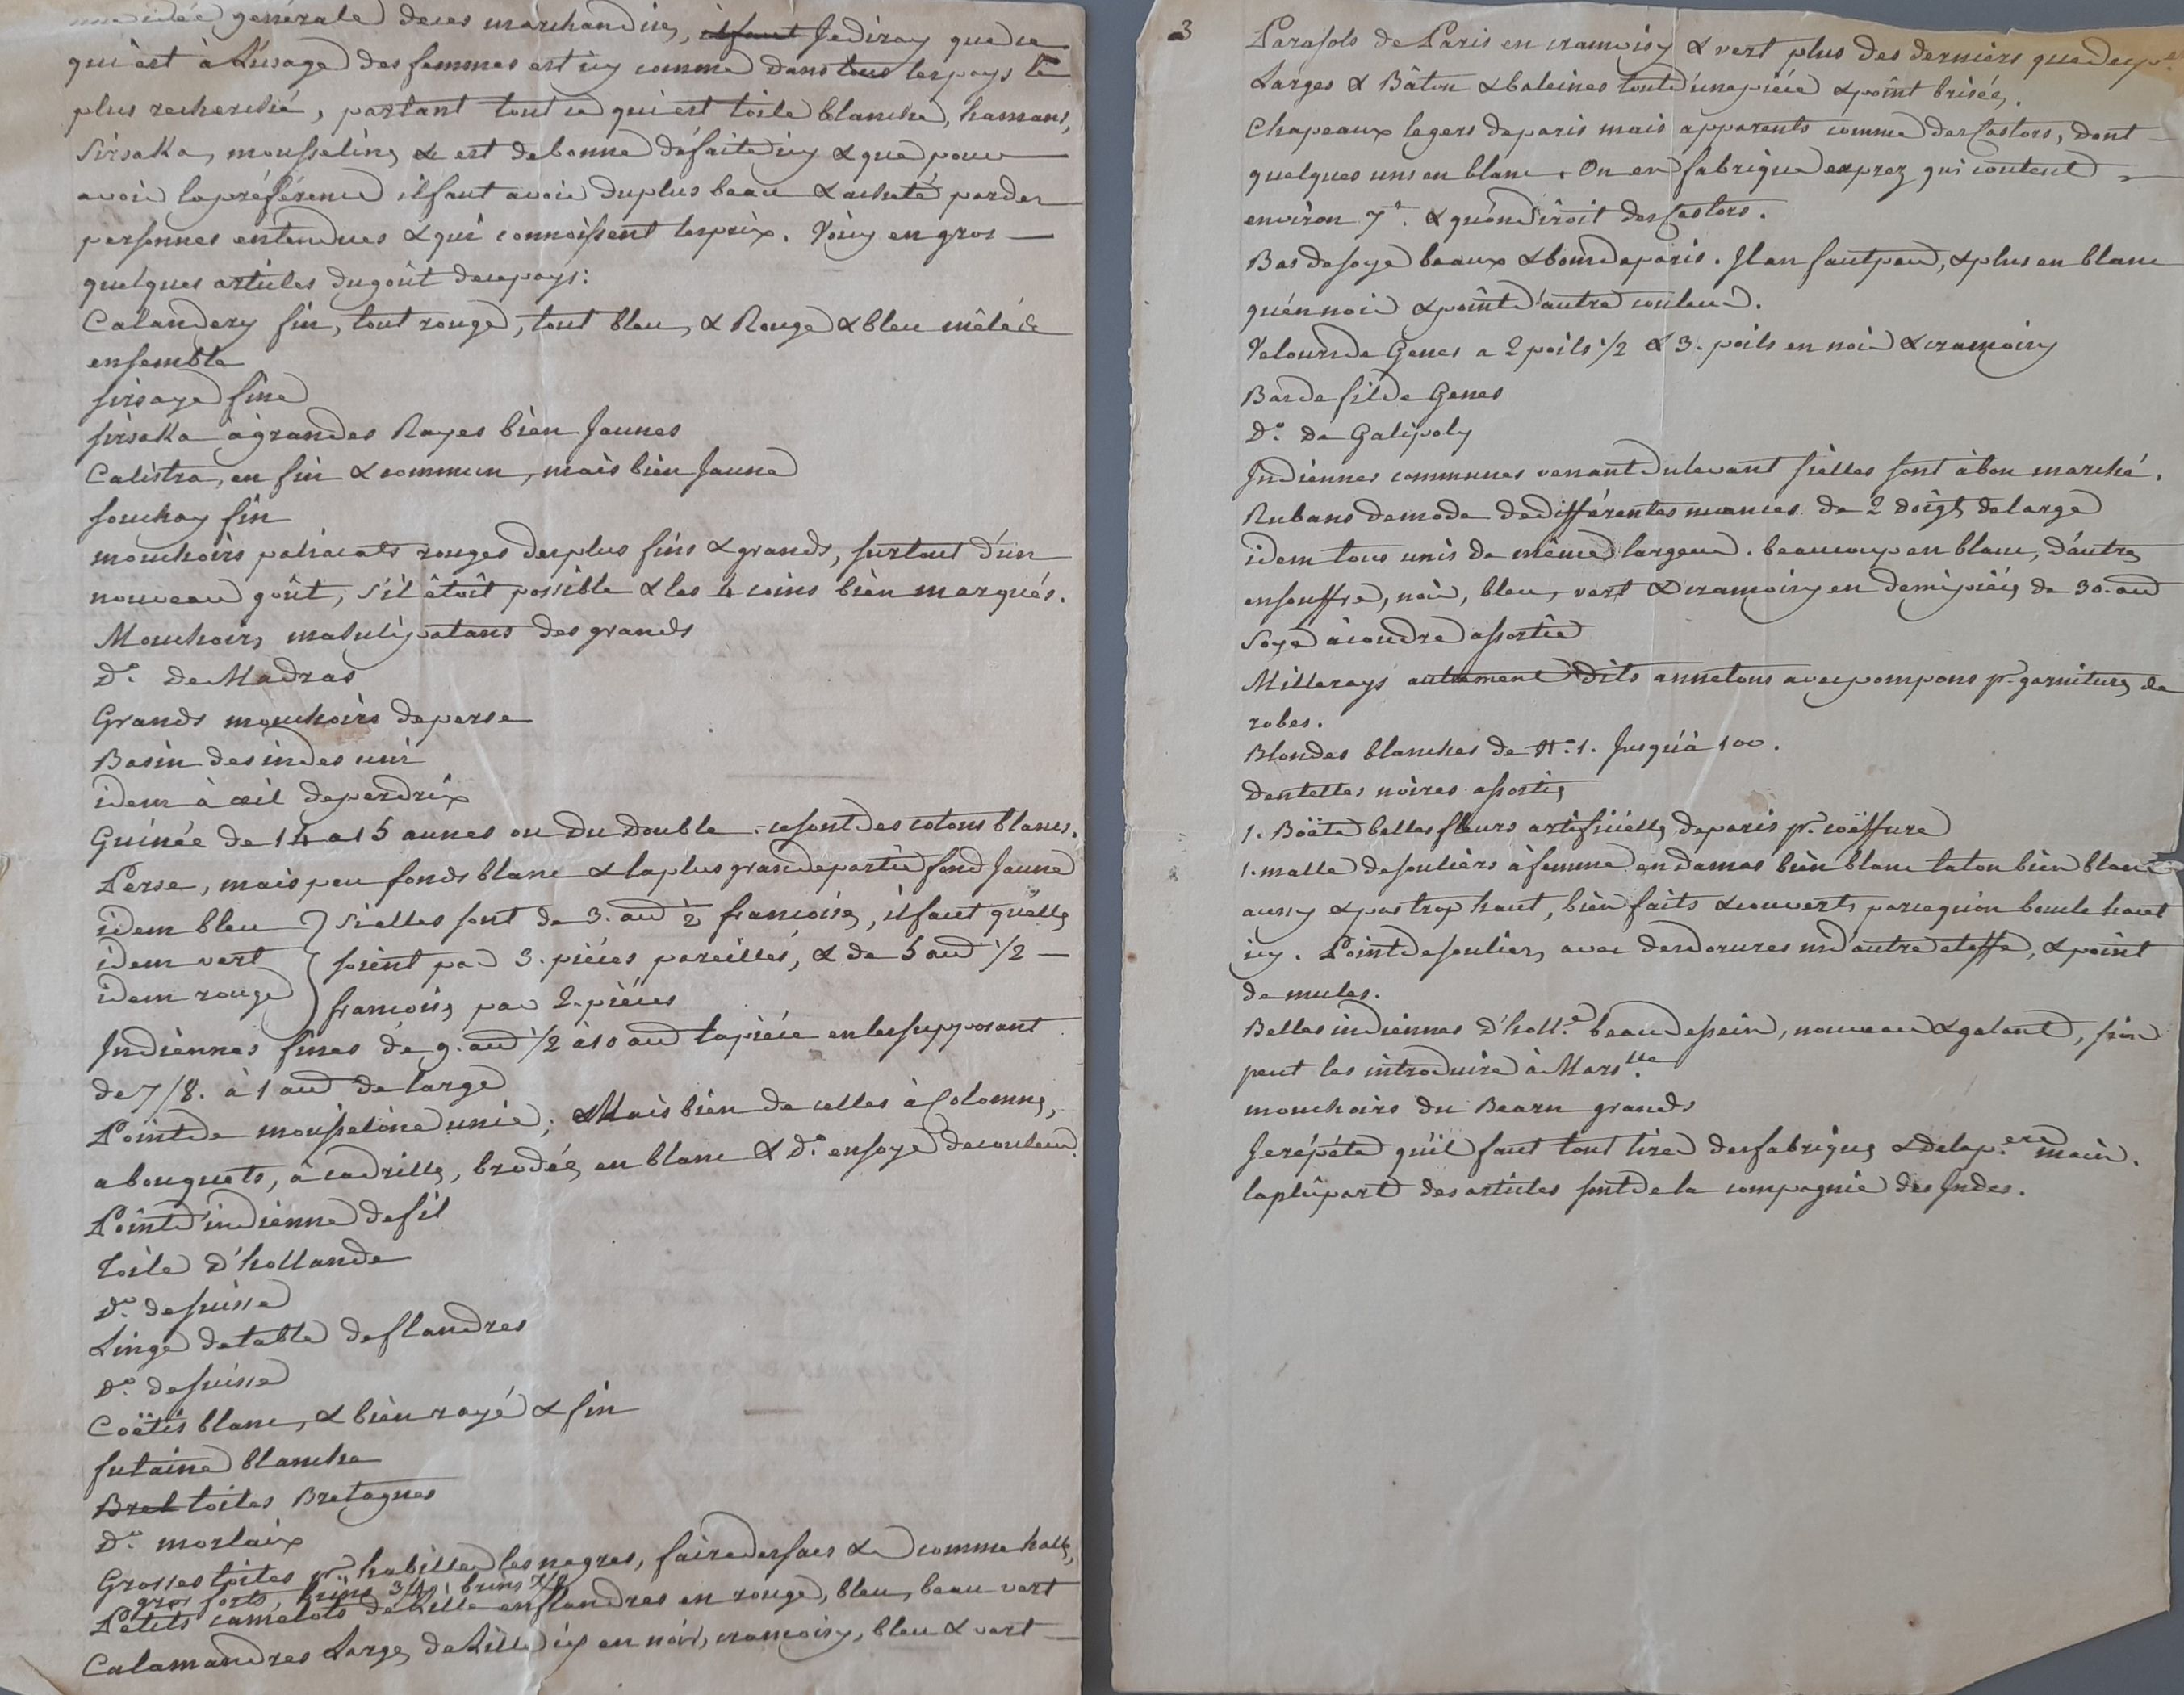 idée generale de ces marchandises, il faut Je diray que ce
qui est à L'usage des femmes est icy comme dans tous les pays le
plus recherché, partant tout ce qui est toile blanche, hamans,
Sirsaka, mousselines &c est de bonne défaite icy & que pour
avoir la préférence il faut avoir du plus beau & acheté par des
personnes entendues & qui connoissent les prix. Voicy en gros
quelques articles du goût de ce pays:
Calandery fin, tout rouge, tout bleu, & Rouge & bleu mêlé
ensemble
sirsaye fine
sirsaka à grandes Rayes bien Jaunes
Calistra, en fin & commun, mais bien Jaune
souchay fin
mouchoirs paliacats rouges des plus fins & grands, surtout d'un
nouveau goût, s'il étoit possible & les 4 coins bien marqués.
Mouchoirs masulipatans des grands
D.o De Madras
Grands mouchoirs de perse
Basin des indes uni
idem à œil de perdrix
Guinée de 14 a 15 aunes ou Du Double - ce sont des cotons blancs.
Perse, mais peu fonds blanc & la plus grande partie fond Jaune
idem bleu } Si elles sont de 3. au 1/2 françoises, il faut qu'elles
idem vert } soient par 3. pièces pareilles, & de 5 au 1/2
idem rouge } françoises par 2. pièces
Indiennes fines de 9. au 1/2 à 10 au la pièce en les supposant
de 7/8. à 1 au de large
Point de mousseline unie; & Mais bien de celles à Colomnes,
a bouquets, à cadrilles, brodées en blanc & D.o en soye de couleur.
Point d'indienne de fil
Toile d'hollande
D.o de suisse
Linge de table de flandres
D.o de suisse
Coëtis blanc, & bien rayé & fin
futaine blanche
Bret toiles Bretagnes
D.o morlaix
Grosses toiles p.r habiller les negres, faire des sacs &c comme halles,
gros forts, brins 3/4, brins 7/8
Petits camelots de Lille en flandres en rouge, bleu, beau vert
Calamandres Larges de Lille icy en noir, cramoisy, bleu & vert
3
Parasols de Paris en cramoisy & vert plus des derniers que de
Larges & Bâton & baleines tout d'une piéce & point brisées.
Chapeaux legers de paris mais apparents comme des Castors, dont
quelques uns en blanc. On en fabrique exprez qui coutent
environ 7 & qu'on diroit des Castors.
Bas de soye beaux & bons de paris. Il en faut peu, & plus en blanc
qu'en noir & point d'autre couleur.
Velours de Genes a 2 poils 1/2 & 3. poils en noir & cramoisy
Bas de fil de Genes
D.o de Galipoly
Indiennes communes venant du levant si elles sont à bon marché.
Rubans de mode de differentes nuances de 2 doigts de large
idem tous unis de même largeur. beaucoup en blanc, d'autres
en souffre, noir, bleu, vert & cramoisy en demi pièces de 30. au
Soye à coudre assortie
Millerays autrement Dits annetons avec pompons p.r garnitures de
robes.
Blondes blanches de N.o 1. Jusqu'à 100.
Dentelles noires assorties
1. Boëte belles fleurs artificielles de paris p.r coëffure
1. malle de souliers à femme en damas bien blanc talon bien blanc
aussy & pas trop haut, bien faits & couverts parcequ'on boucle haut
icy. Point de souliers avec des dorures ni d'autre etoffe, & point
de mules.
Belles indiennes d'holl.e beau dessein, nouveau & galant, si on
peut les introduire à Mars.lle
mouchoirs du Bearn grands
Je répéte qu'il faut tout tirer des fabriques & de la p.ere main.
la plûpart des articles sont de la compagnie des Indes.